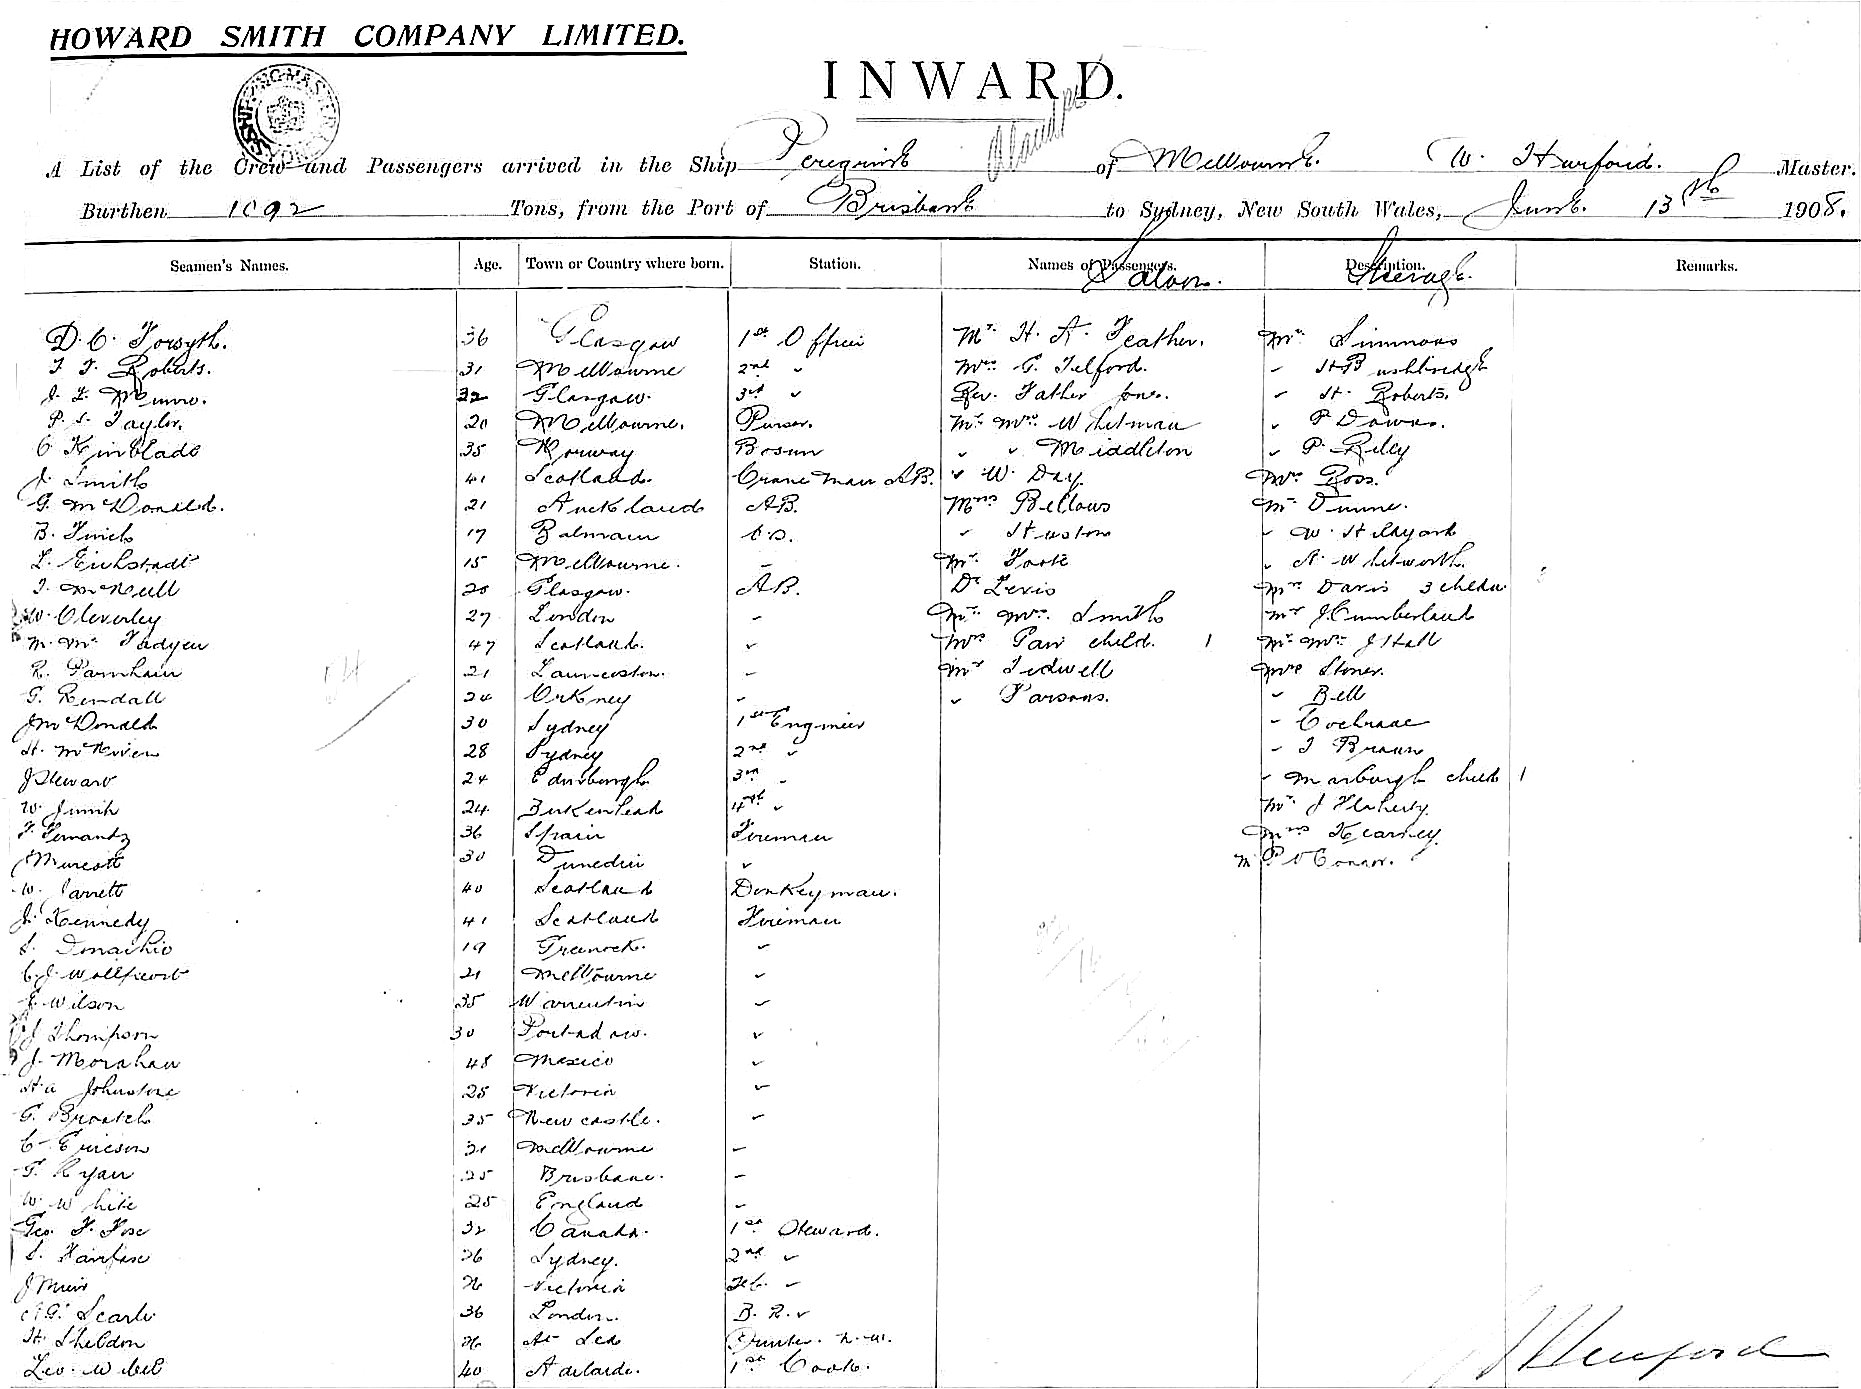 HOWARD SMITH COMPANY LIMITED.
INWARD.
A List of the Crew and Passengers arrived in the Ship Peregrine of Melbourne. W. Hurford. Master.
Burthen 1092 Tons, from the Port of Brisbane to Sydney, New South Wales, June 13th 1908.
Seamen's Names. Age. Town or Country where born. Station. Names of Passengers. Saloon. Description. Steerage. Remarks.
D. C. Forsyth. 36 Glasgow 1st Officer Mr. H. A. Feather. Mr. Simmons
F. F. Roberts. 31 Melbourne 2nd " Mrs. G. Telford. " H Bushbridge
Munro. 32 Glasgow. 3rd " Rev. Father Jones. " H. Roberts.
P. S. Taylor. 20 Melbourne. Purser. Mr. Mrs. Whitman " P Downs.
C Kinblade 35 Norway Bosun " " Middleton " P. Riley
J. Smith 41 Scotland. Crane man AB. " W. Day. Mrs. Ross.
G. McDonald. 21 Auckland AB. Mrs Bellows Mr
B. Finch 17 Balmain O.S. " Huston " W. Hillyard
15 Melbourne. " Mr. Foote " A. Whitworth.
T. McNeill 20 Glasgow. AB. Dr Levis Mrs Davis 3 childn
W. Cleverley 27 London " Mr. Mrs. Smith Mr J. Cumberland
M. Mc Fadyen 47 Scotland. " Mrs child. 1 Mr. Mrs. J Hall
R. Parnham 21 Launceston. " Mr Tidwell Mrs Stoner.
G. Kendall 24 Orkney " " Parsons. " Bell
J McDonald 30 Sydney 1st Engineer " Cochrane
H. 28 Sydney 2nd " " T Brown
J Steward 24 Edinburgh 3rd " " child 1
W. 24 Birkenhead 4th " Mr. J Flaherty.
F. Fernandz 36 Spain Fireman Mrs Kearney.
30 Dunedin " M P O'Connor.
W. Jarrett 40 Scotland Donkeyman.
J. Kennedy 41 Scotland Fireman
S. 19 Greenock. "
C. J. 21 Melbourne "
J. Wilson 35 "
J Thompson 30 "
J. Morahan 48 Mexico "
H a Johnstone 25 Victoria "
G. 35 Newcastle. "
C. Ericson 21 Melbourne "
T. Ryan 25 Brisbane. "
W. White 25 England "
Geo. F. Fox 32 Canada. 1st Steward.
S. Fairfax 26 Sydney. 2nd "
J Muir 26 Victoria "
A. G. Searle 36 London. B. R. "
H. Sheldon 26 At Sea
40 Adelaide. 1st Cook.
Hurford